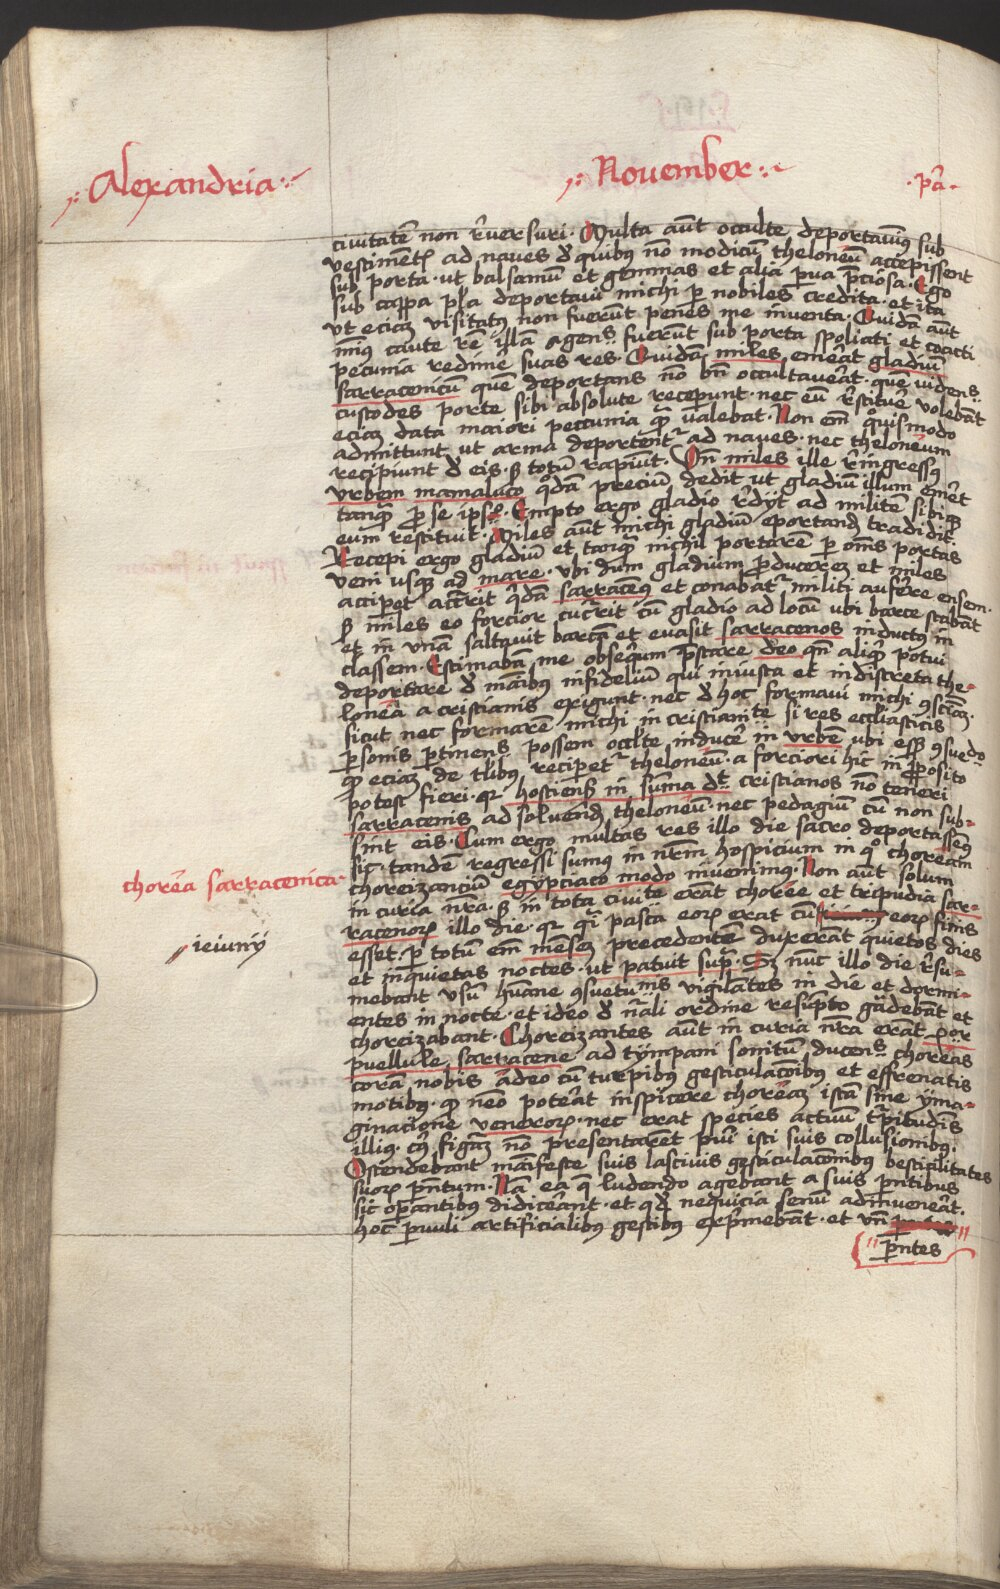 Alexandria
November
p̄ꝛa
ciuitatē non r̄uersuri. Multa aūt occulte deportauim⁹ sub
vestimentꝭ ad naues d̄ quibus nō modicū theloneū accepissent
sub porta. ut balsamū et gemmas et alia p̄ua p̄ciosa. Ego
sub cappa pl̄a deportaui michi p̄ nobiles credita. et ita
vt eciaꝫ visitatꝰ non fuerūt penes me inuenta. Quidā aūt
min⁹ caute rē illā agens fuerūt sub porta spoliati et coacti
pecunia redimē suas res. Quidā miles emerāt gladiū
sarracenicū quē deportans nō bn̄ occultauerāt. quē videns
custodes porte sibi absolute receperunt. nec eū r̄stituē volebāt
eciaꝫ data maiori peccunia qꝫ valebat. Non em̄ quouismodo
admittunt ut arma deportentᷣ ad naues. nec theloneum
recipiunt d̄ eis. sꝫ totū rapiūt. Vn̄ miles ille r̄ingress⁹
vrbem mamaluco q̄dā preciū dedit ut gladiū illum emēt
tanqꝫ pro se ipso. Empto ergo gladio r̄dyt ad militē sibiqꝫ
eum restituit. Miles aūt michi gladiū eportandū tradidit.
Recepi ergo gladiū et tanqꝫ nichil portarē p̄ om̄s portas
veni usqꝫ ad mare. vbi dum gladium produceręꝫ et miles
acciperet accurrit q̄dā sarracen⁹ et conabatᷣ militi auferre ensem.
sꝫ miles eo forcior cucurrit cū gladio ad locū ubi barce stabāt
et in vnā saltauit barcā et euasit sarracenos inductus in
classem. Estimabā me obsequium p̄stare deo qn̄ aliqd̄ potui
deportare d̄ manibus infidelium qui iniusta et indiscreta the-
lonea a cristianis exigunt. nec d̄ hoc formaui michi 9scīaꝫ.
sicut nec formarē michi in cristianitate si res ecclīasticis
p̄sonis p̄tinens possem occulte inducē in vrbē ubi esset 9suetudo
qꝫ eciaꝫ de tlibus reciperetᷣ theloneū. a forciori hic in proposito
potest fieri. qꝛ hostiensis in sum̄a dt̄ cristianos nō teneri
sarracenis ad soluendū theloneū. nec pedagiū cū non sub-
sint eis. Cum ergo multas res illo die sacro deportassem⁹
sic. tandē regressi sumus in nr̄m hospicium in qo choream
choreizanciū egypciaco modo inuenimus. Non aūt solum
in curia nr̄a. sꝫ in tota ciuite erāt choree et tripudia sar-
racenoꝝ illo die. qꝛ qꝫi pasca eoꝝ erat cū eoꝝ finis
esset. p̄ totū em̄ menseꝫ precedentē duxerāt quietos dies
et inquietas noctes. ut patuit supra. Sꝫ nūc illo die r̄su-
mebant vsū hūane 9suetudinis vigilātes in die et dormi-
entes in nocte. et ideo d̄ nr̄ali ordine resūpto gaudebāt et
choreizabant. Choreizantes aūt in curia nr̄a erāt
puellule sarracene ad tympani sonitū ducens choreas
corā nobis adeo cū turpibus gesticulacōibus et effrenatis
motibus. qꝫ nemo poterāt inspicere choreaꝫ istā sine yma-
ginacione venereoꝝ. nec erat species actuū tripudiis
illius. cui⁹ figurā nō presentarēt pueri isti suis collusionibus.
Ostendebant manifeste suis lasciuis gesticulacōnibus bestialitates
suoꝝ parentum. Nā ea que ludendo agebant a suis parentibus
sic operantibus didicerant. et qd̄ nequicia senū adinuenerāt.
hoc paruuli artificialibus gestibus exprimebāt. et vn̄
parentes
chorea sarracenica.
ieiunij